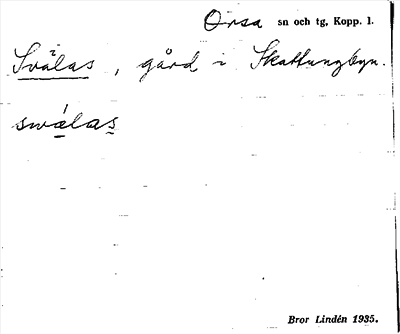 Orsa sn och tg, Kopp. l.
Svälas, gård i Skattungbyn.
swálas
Bror Lindén 1935.